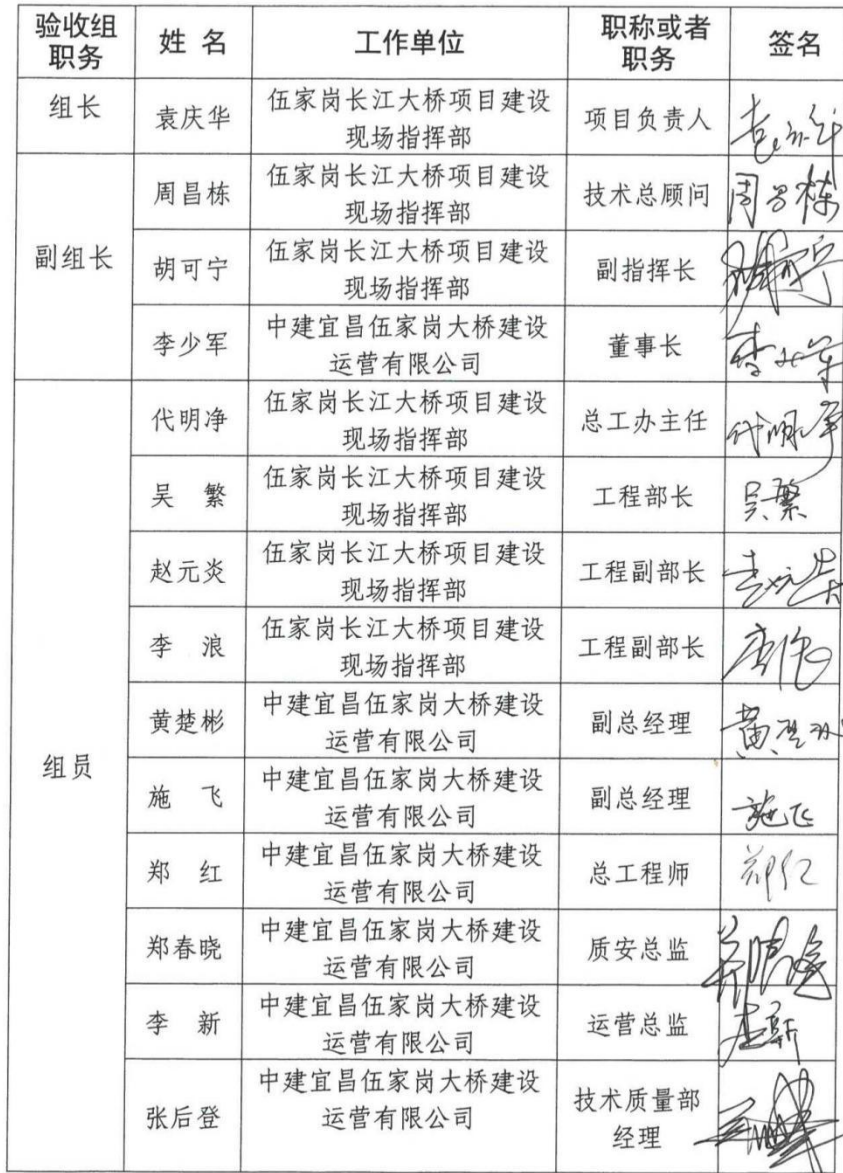 验收组
职务
姓 名
工作单位
职称或者
职务
签名
组长
袁庆华
伍家岗长江大桥项目建设
现场指挥部
项目负责人
副组长
周昌栋
伍家岗长江大桥项目建设
现场指挥部
技术总顾问
周昌栋
胡可宁
伍家岗长江大桥项目建设
现场指挥部
副指挥长
李少军
中建宜昌伍家岗大桥建设
运营有限公司
董事长
组员
代明净
伍家岗长江大桥项目建设
现场指挥部
总工办主任
代明净
吴 繁
伍家岗长江大桥项目建设
现场指挥部
工程部长
吴繁
赵元炎
伍家岗长江大桥项目建设
现场指挥部
工程副部长
李 浪
伍家岗长江大桥项目建设
现场指挥部
工程副部长
黄楚彬
中建宜昌伍家岗大桥建设
运营有限公司
副总经理
黄楚彬
施 飞
中建宜昌伍家岗大桥建设
运营有限公司
副总经理
施飞
郑 红
中建宜昌伍家岗大桥建设
运营有限公司
总工程师
郑红
郑春晓
中建宜昌伍家岗大桥建设
运营有限公司
质安总监
李 新
中建宜昌伍家岗大桥建设
运营有限公司
运营总监
李新
张后登
中建宜昌伍家岗大桥建设
运营有限公司
技术质量部
经理